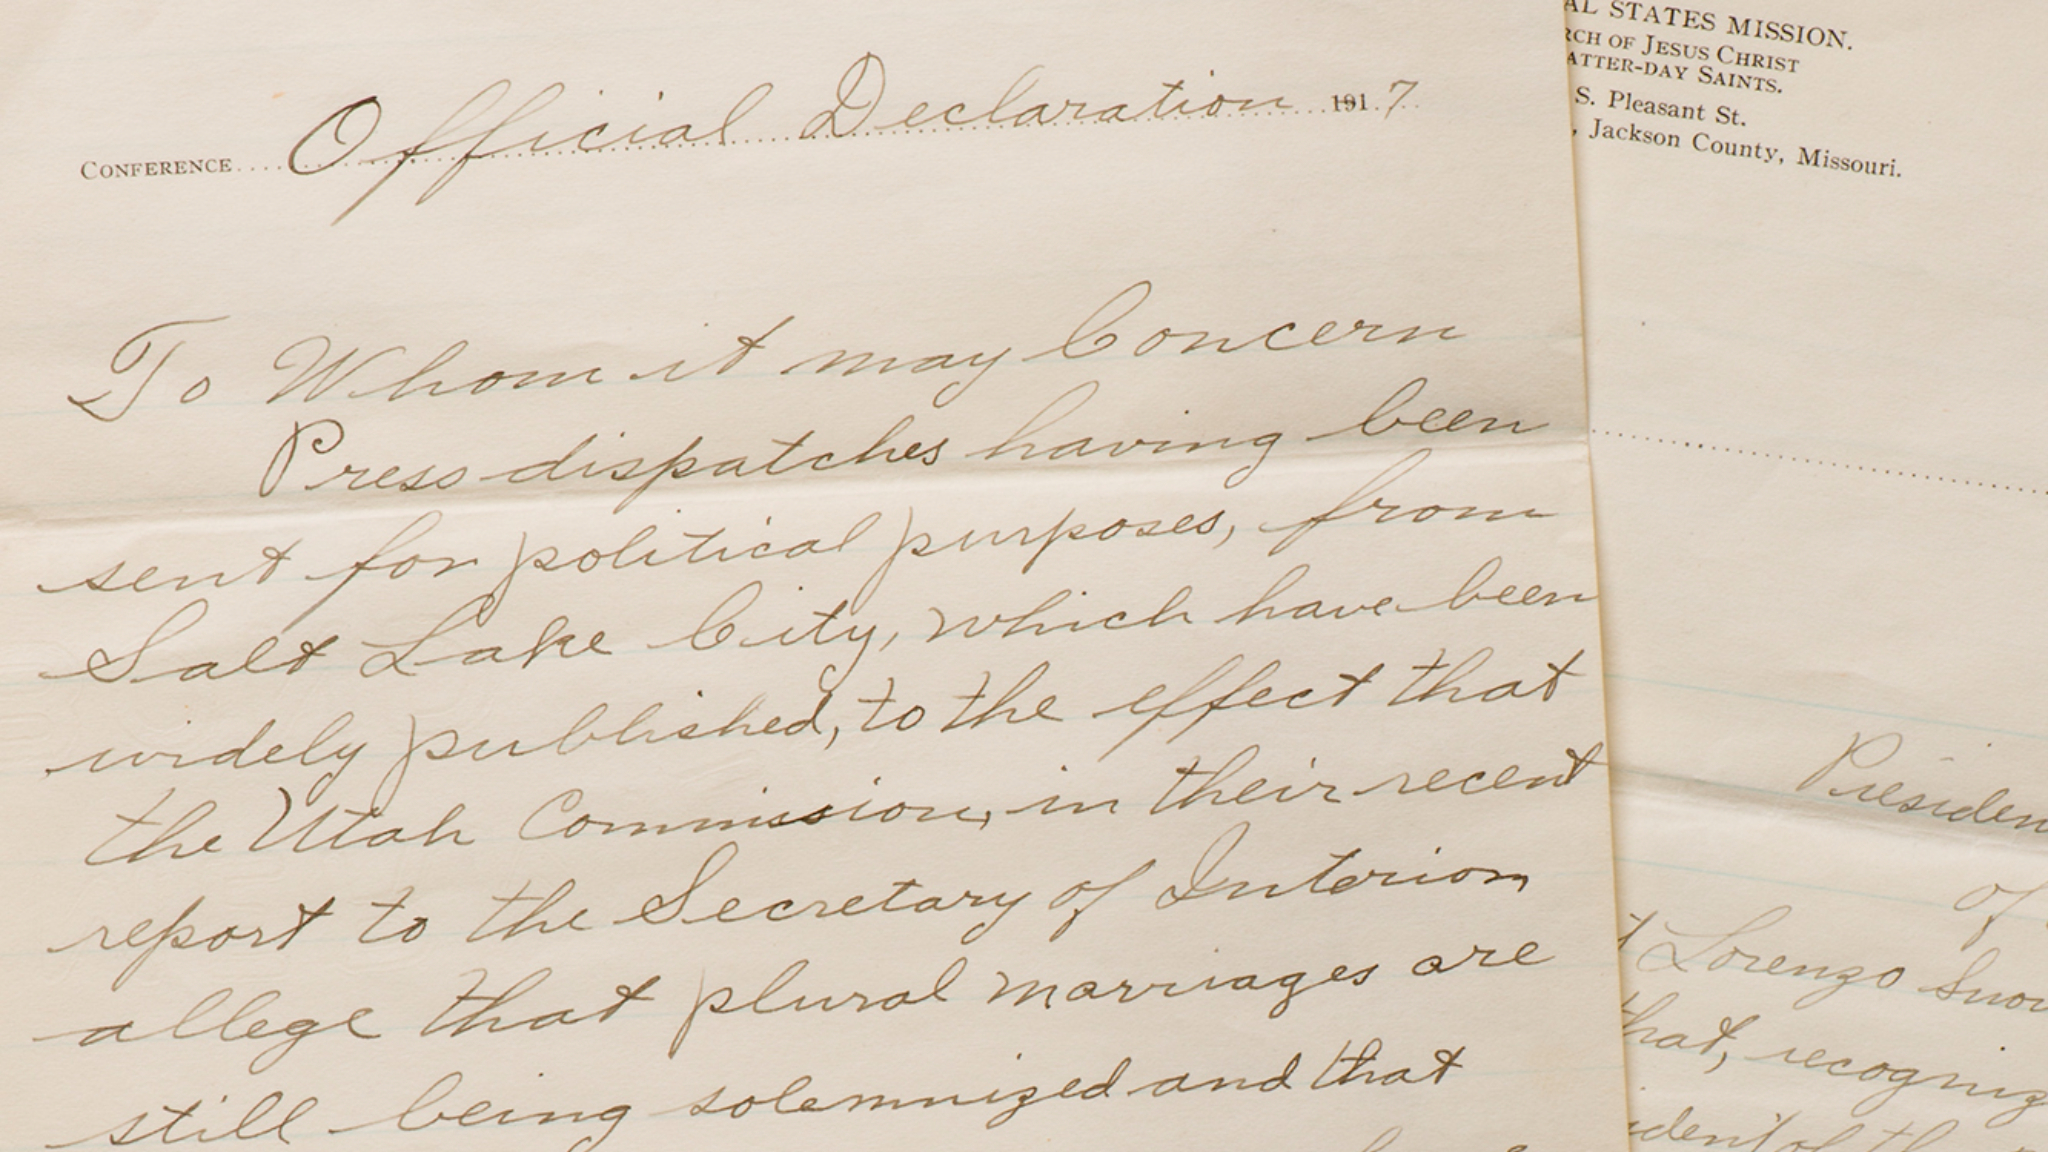 Conference Official Declaration 1917
To Whom it may Concern
Press dispatches having been
sent for political purposes, from
Salt Lake City, which have been
widely published, to the effect that
the Utah Commission, in their recent
report to the Secretary of Interior,
allege that plural marriages are
still being solemnized and that
AL STATES MISSION.
RCH OF JESUS CHRIST
ATTER-DAY SAINTS.
S. Pleasant St.
, Jackson County, Missouri.
Presiden
of
t Lorenzo Snow
that, recogniz
ident of th